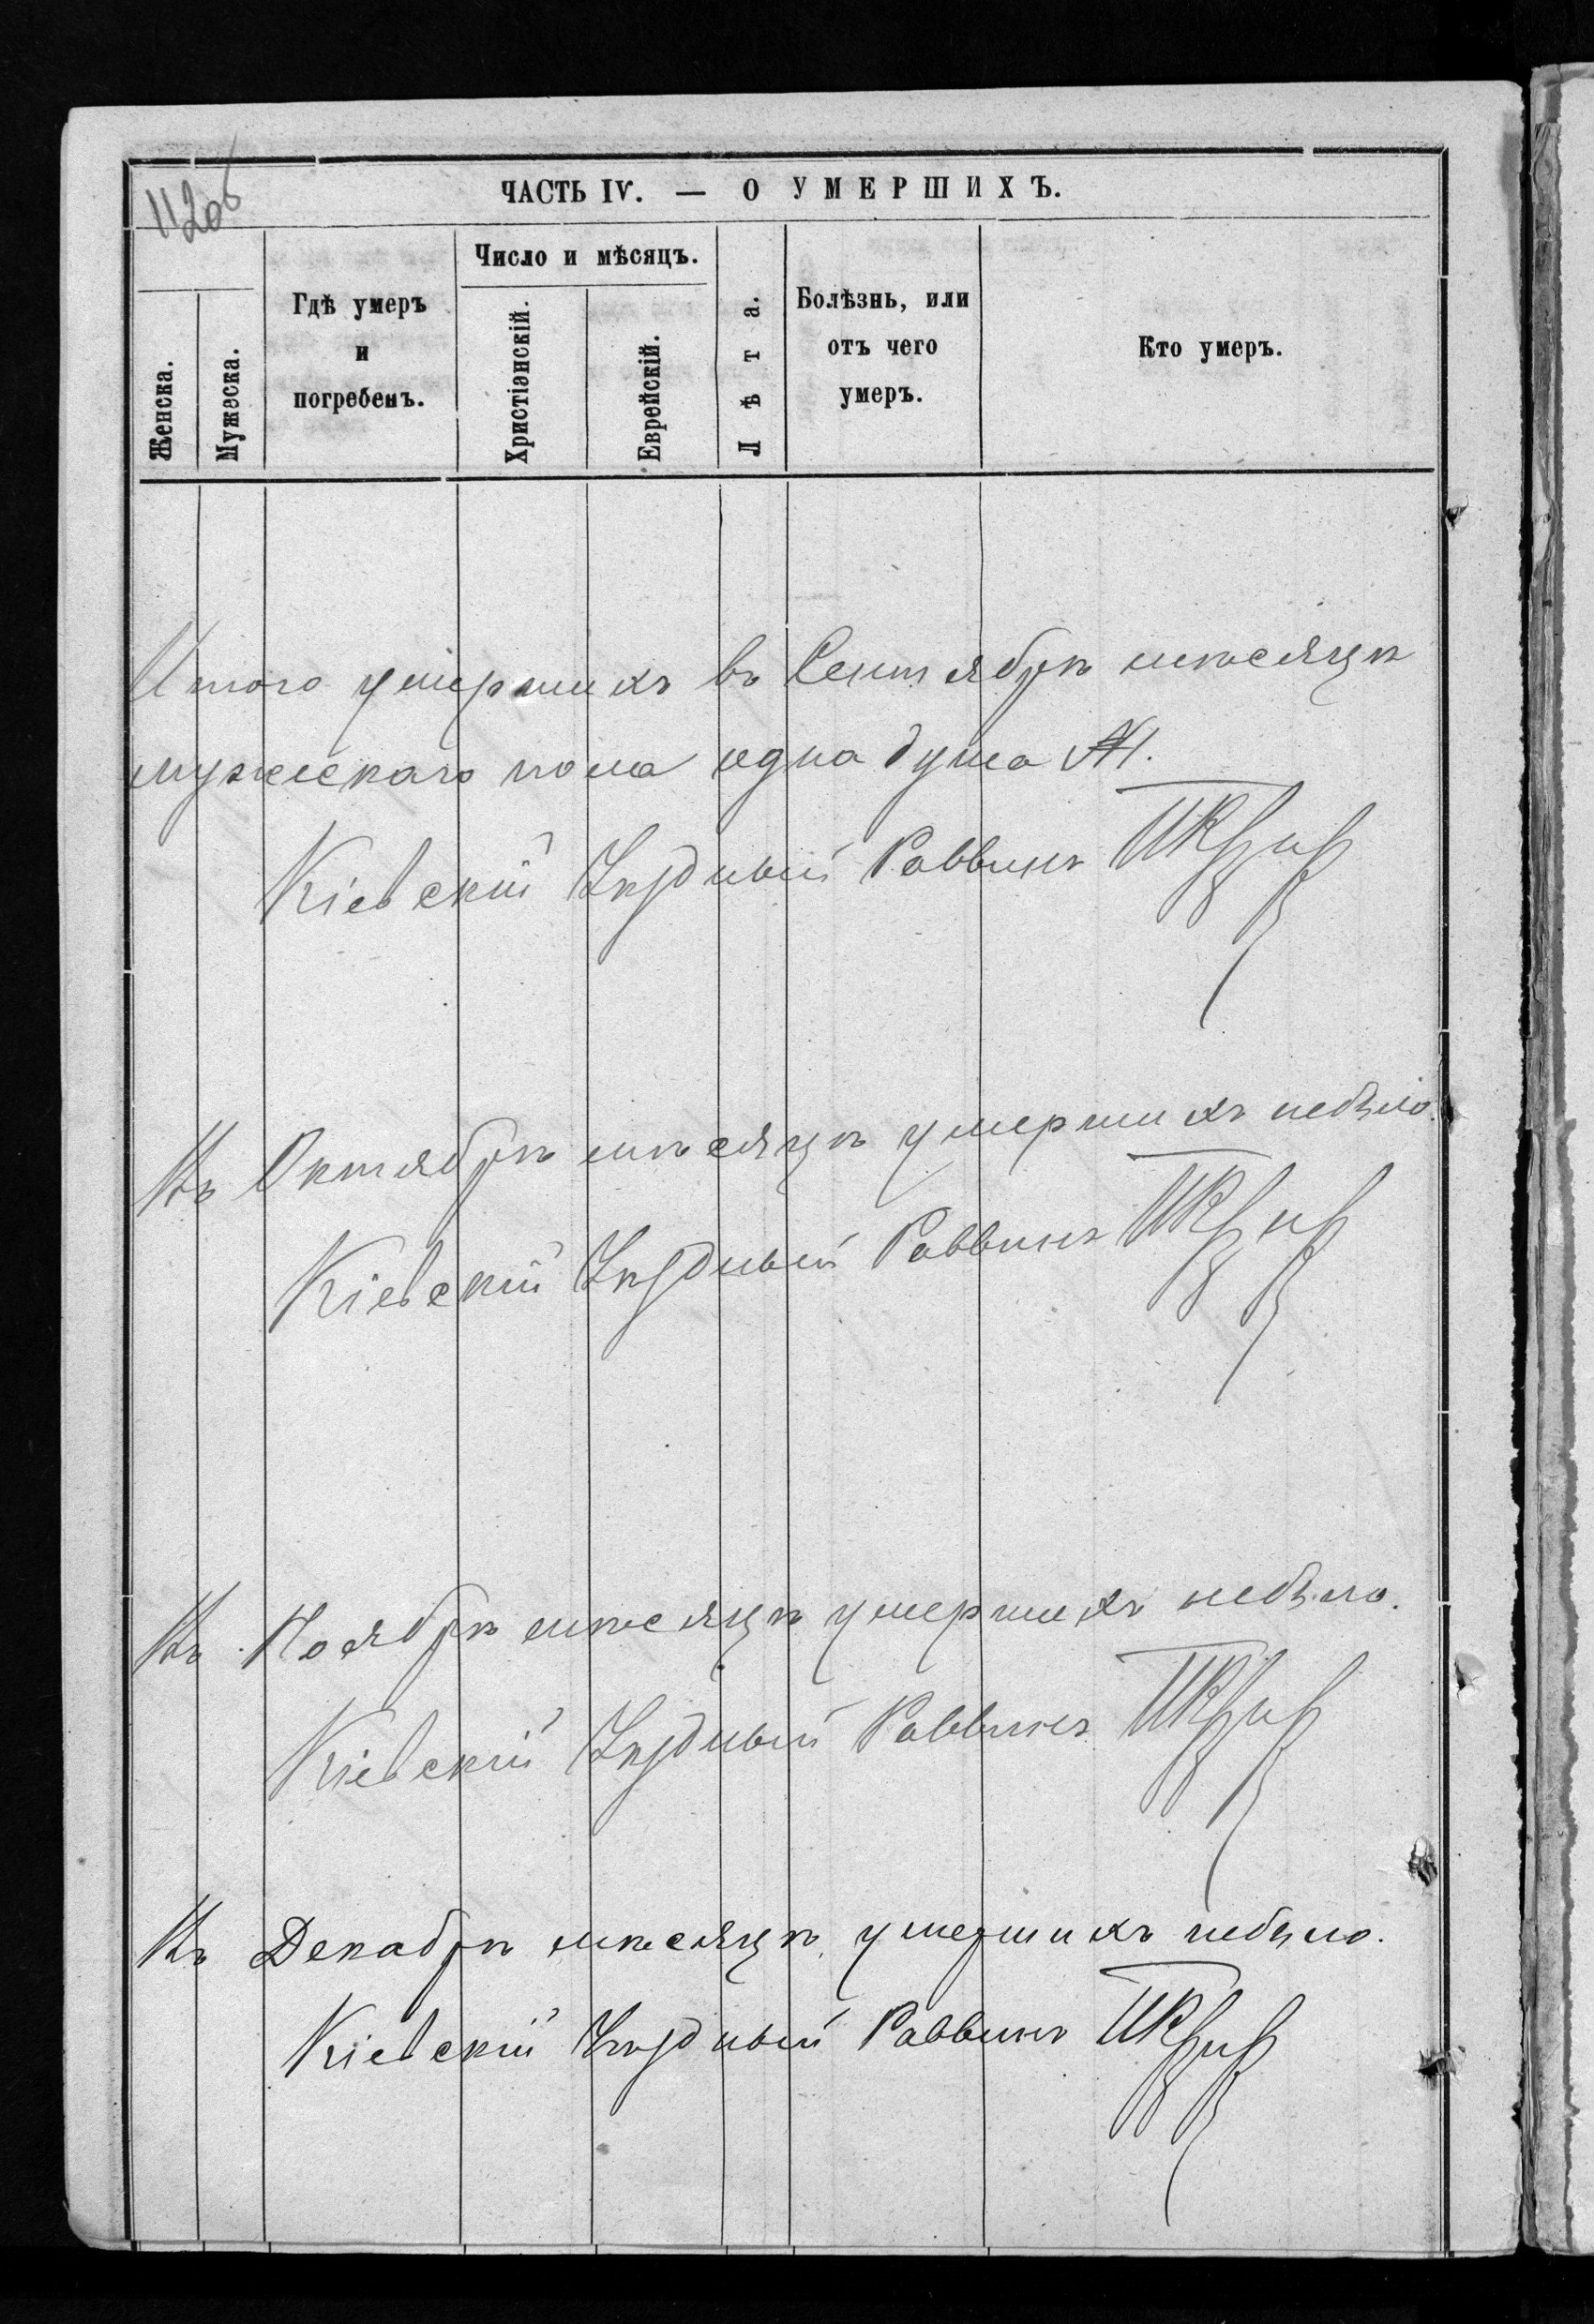 112об
ЧАСТЬ IV. — О УМЕРШИХЪ.
Женска.
Мужеска.
Гдѣ умеръ
и
погребенъ.
Число и мѣсяцъ.
Христіанскій.
Еврейскій.
Лѣта.
Болѣзнь, или
отъ чего
умеръ.
Кто умеръ.
Итого умершихъ въ Сентябрѣ мѣсяцѣ
мужескаго пола одна душа №1.
Кіевскій Уѣздный Раввинъ
Въ Октябрѣ мѣсяцѣ умершихъ небыло.
Кіевскій Уѣздный Раввинъ
Въ Ноябрѣ мѣсяцѣ умершихъ небыло.
Кіевскій Уѣздный Раввинъ
Въ Декабрѣ мѣсяцѣ умершихъ небыло.
Кіевскій Уѣздный Раввинъ